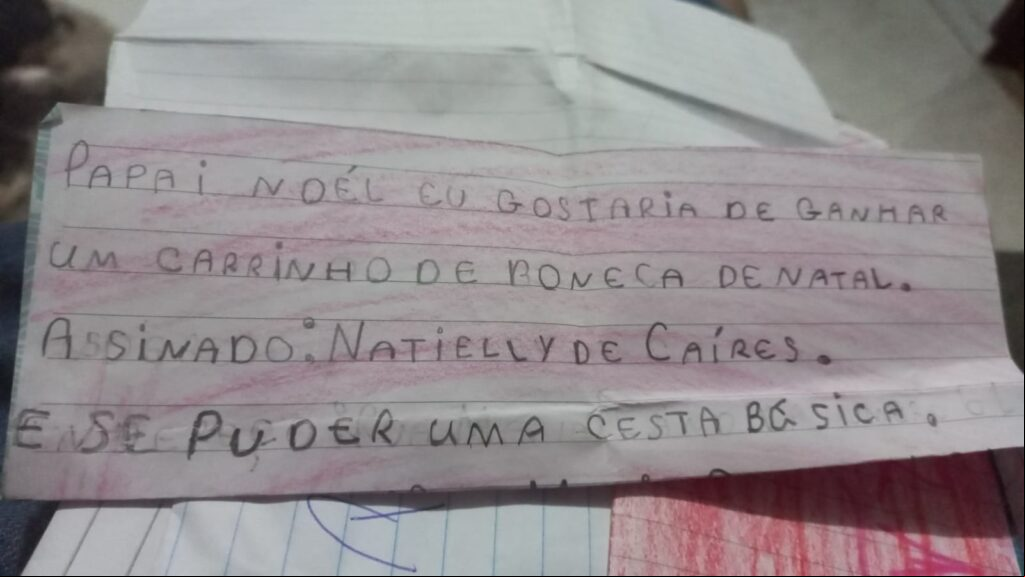 PAPAi NOÉL EU GOSTARiA DE GANHAR
UM CARRiNHO DE BONECA DE NATAL.
ASSiNADO: NATiELLY DE CAÍRES.
E SE PUDER UMA CESTA BÁSiCA.